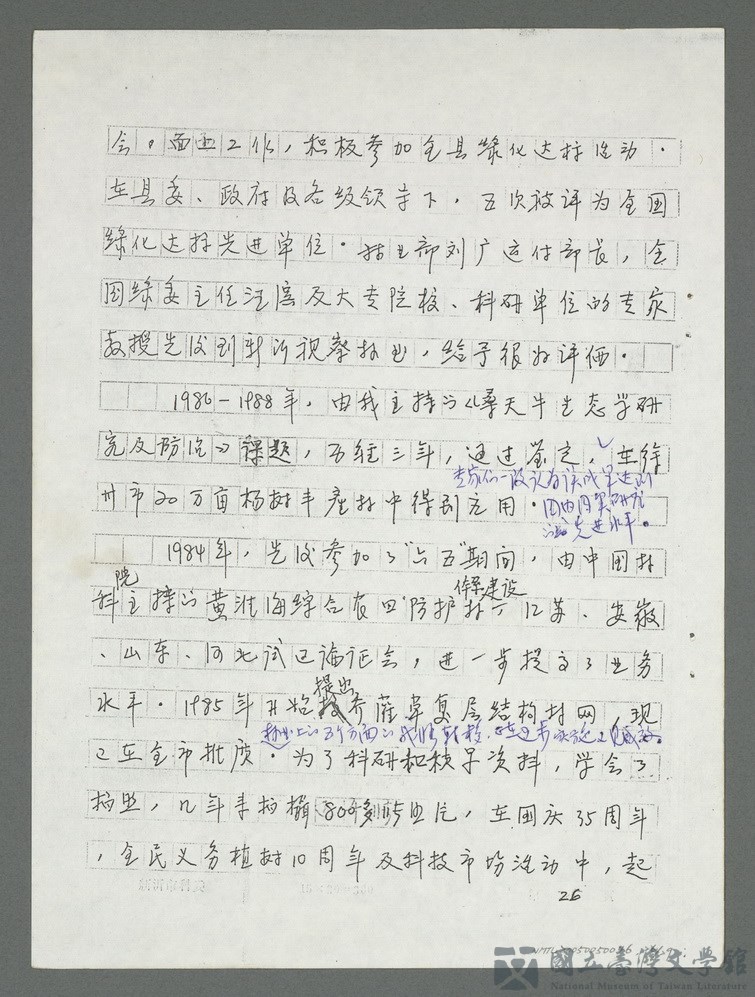 会。面上工作，积极参加全县绿化达标活动.
在县委、政府及各级领导下，五次被评为全国
绿化达标先进单位. 林业部刘广运付部长，全
国绿委主任汪滨及大专院校、科研单位的专家
教授先后到新沂视察林业，给予很好评价.
1986－1988年，由我主持的《桑天牛生态学研
究及防治》课题，历经三年，通过鉴定，在徐
专家们一致认为该成果达到
州市20万亩杨树丰产林中得到应用.
国内同类研究
的先进水平。
1984年，先后参加了"六五"期间，由中国林
院
体系建设
科主持的黄淮海综合农田防护林、江苏、安徽
、山东、河北试区论证会，进一步提高了业务
提出
水平. 1985年开始 乔灌草复层结构林网，现
林业上的五个方面的战略转移
已在全市批质. 为了科研和积累资料，学会了
拍照，几年来拍摄800多张照片，在国庆35周年
，全民义务植树10周年及科技市场活动中，起
26
國立臺灣文學館
National Museum of Taiwan Literature